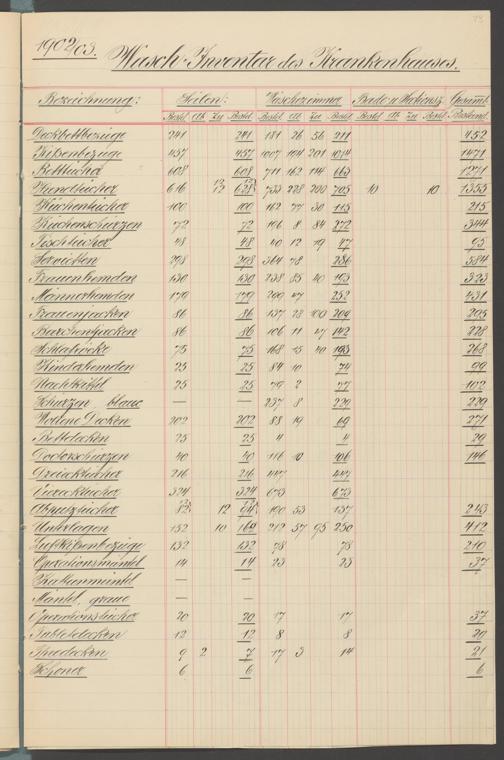 1902/03.
Wasch-Inventar des Krankenhauses.
Bezeichnung: Seilen: Waschezimmer Bade u. Stations Gesamt
Bestd. Ab. Zu Bestd. Bestd. Ab. Zu Bestd. Bestd. Ab. Zu Bestd. Bestand.
Deckbettbezüge 241 241 181 26 56 211 452
Kißenbezüge 457 457 1007 194 201 1014 1471
Betttücher 608 608 711 162 114 663 1271
Handtücher 616 12 628 733 228 200 705 10 10 1333
Küchentücher 100 100 162 77 30 115 215
Küchenschurzen 72 72 196 8 84 272 344
Tischtücher 48 48 40 12 19 47 95
Servietten 298 298 364 78 286 584
Frauenhemden 130 130 238 85 40 193 323
Männerhemden 179 179 299 47 252 431
Frauenjacken 86 86 137 28 100 209 295
Burschenjacken 86 86 106 11 47 142 228
Schlafröcke 75 75 168 15 40 193 268
Kinderhemden 25 25 84 10 74 99
Nachtkittel 25 25 79 2 77 102
Schurzen blaue — — 237 8 229 229
Wollene Decken 202 202 88 19 69 271
Bettdecken 25 25 4 4 29
Doctorschurzen 40 40 116 10 106 146
Dreiecktücher 216 216 447 447
Vierecktücher 324 324 673 673
Abputztücher 82 12 94 190 53 137 243
Unterlagen 152 10 162 212 57 95 250 412
Luftkißenbezüge 132 132 78 78 210
Operationsmäntel 14 14 23 23 37
—
Mäntel, graue — —
Operationstücher 20 20 17 17 37
12 12 8 8 20
9 2 7 17 3 14 21
6 6 6